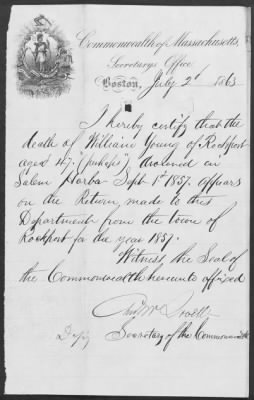 Commonwealth of Massachusetts,
Secretary's Office,
Boston, July 2d 1863
I hereby certify that the
death of William Young of Rockport
aged drowned in
Salem Harbor Sept 1st 1857. appears
on the Return, made to this
Department from the town of
Rockport for the year 1857.
Witness, the Seal of
the Commonwealth hereunto affixed
Depy Secretary of the Commonwealth